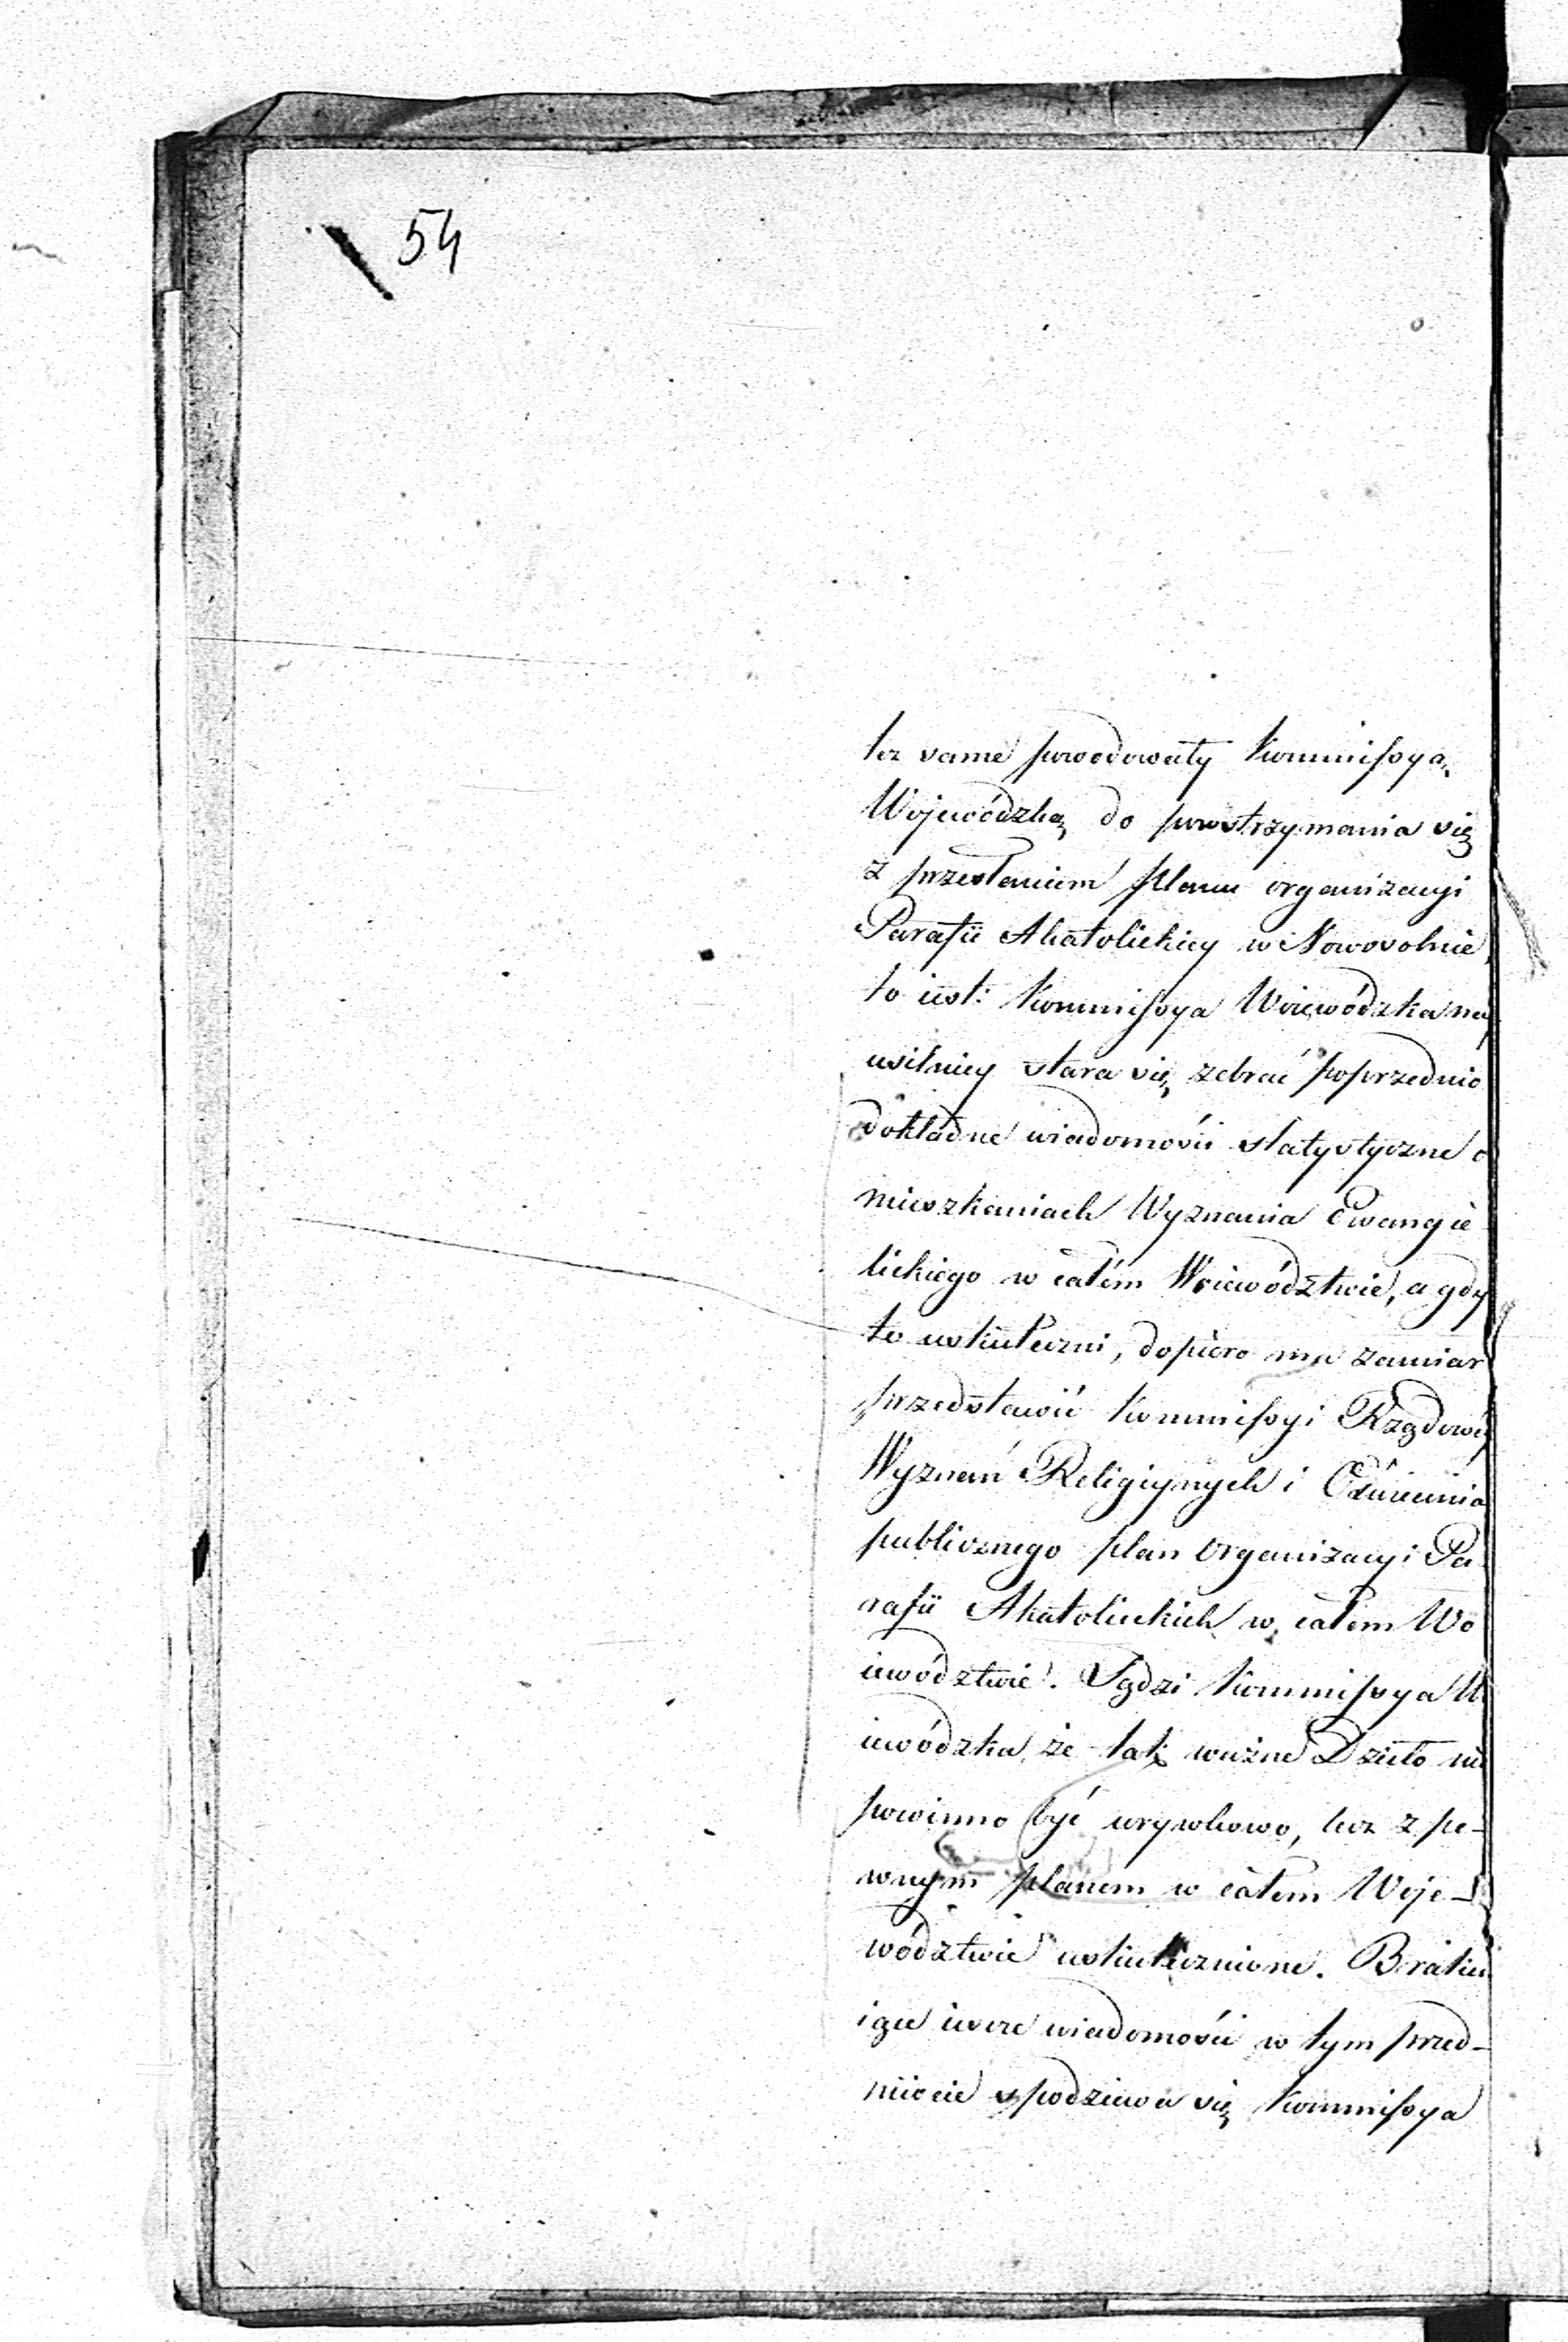 54
też same powodowały Kommissyą
Wojewódzką do powstrzymania się
z przesłaniem planu organizacyi
Parafii Akatolickiey w Nowosolnie,
to iest: Kommissya Woiewódzka nay
usilniey stara się zebrać poprzednio
dokładne wiadomości statystyczne o
mieszkaniach Wyznania Ewangie
lickiego w całém Woiewództwie, a gdy
to uskuteczni, dopiero ma zamiar
przedstawić Kommissyi Rządowéy
Wyznań Religiynych i Oświecenia
publicznego plan organizacyi Pa
rafii Akatolickich w całem Wo
iewództwie. Sądzi Kommissya W
iewódzka, że tak ważne Dzieło nie
powinno być urywkowo, lecz z pe-
wnym planem w całem Woje-
wództwie uskutecznione. Braku
iące ieszcze wiadomości w tym przed-
miocie spodziewa się Kommissya